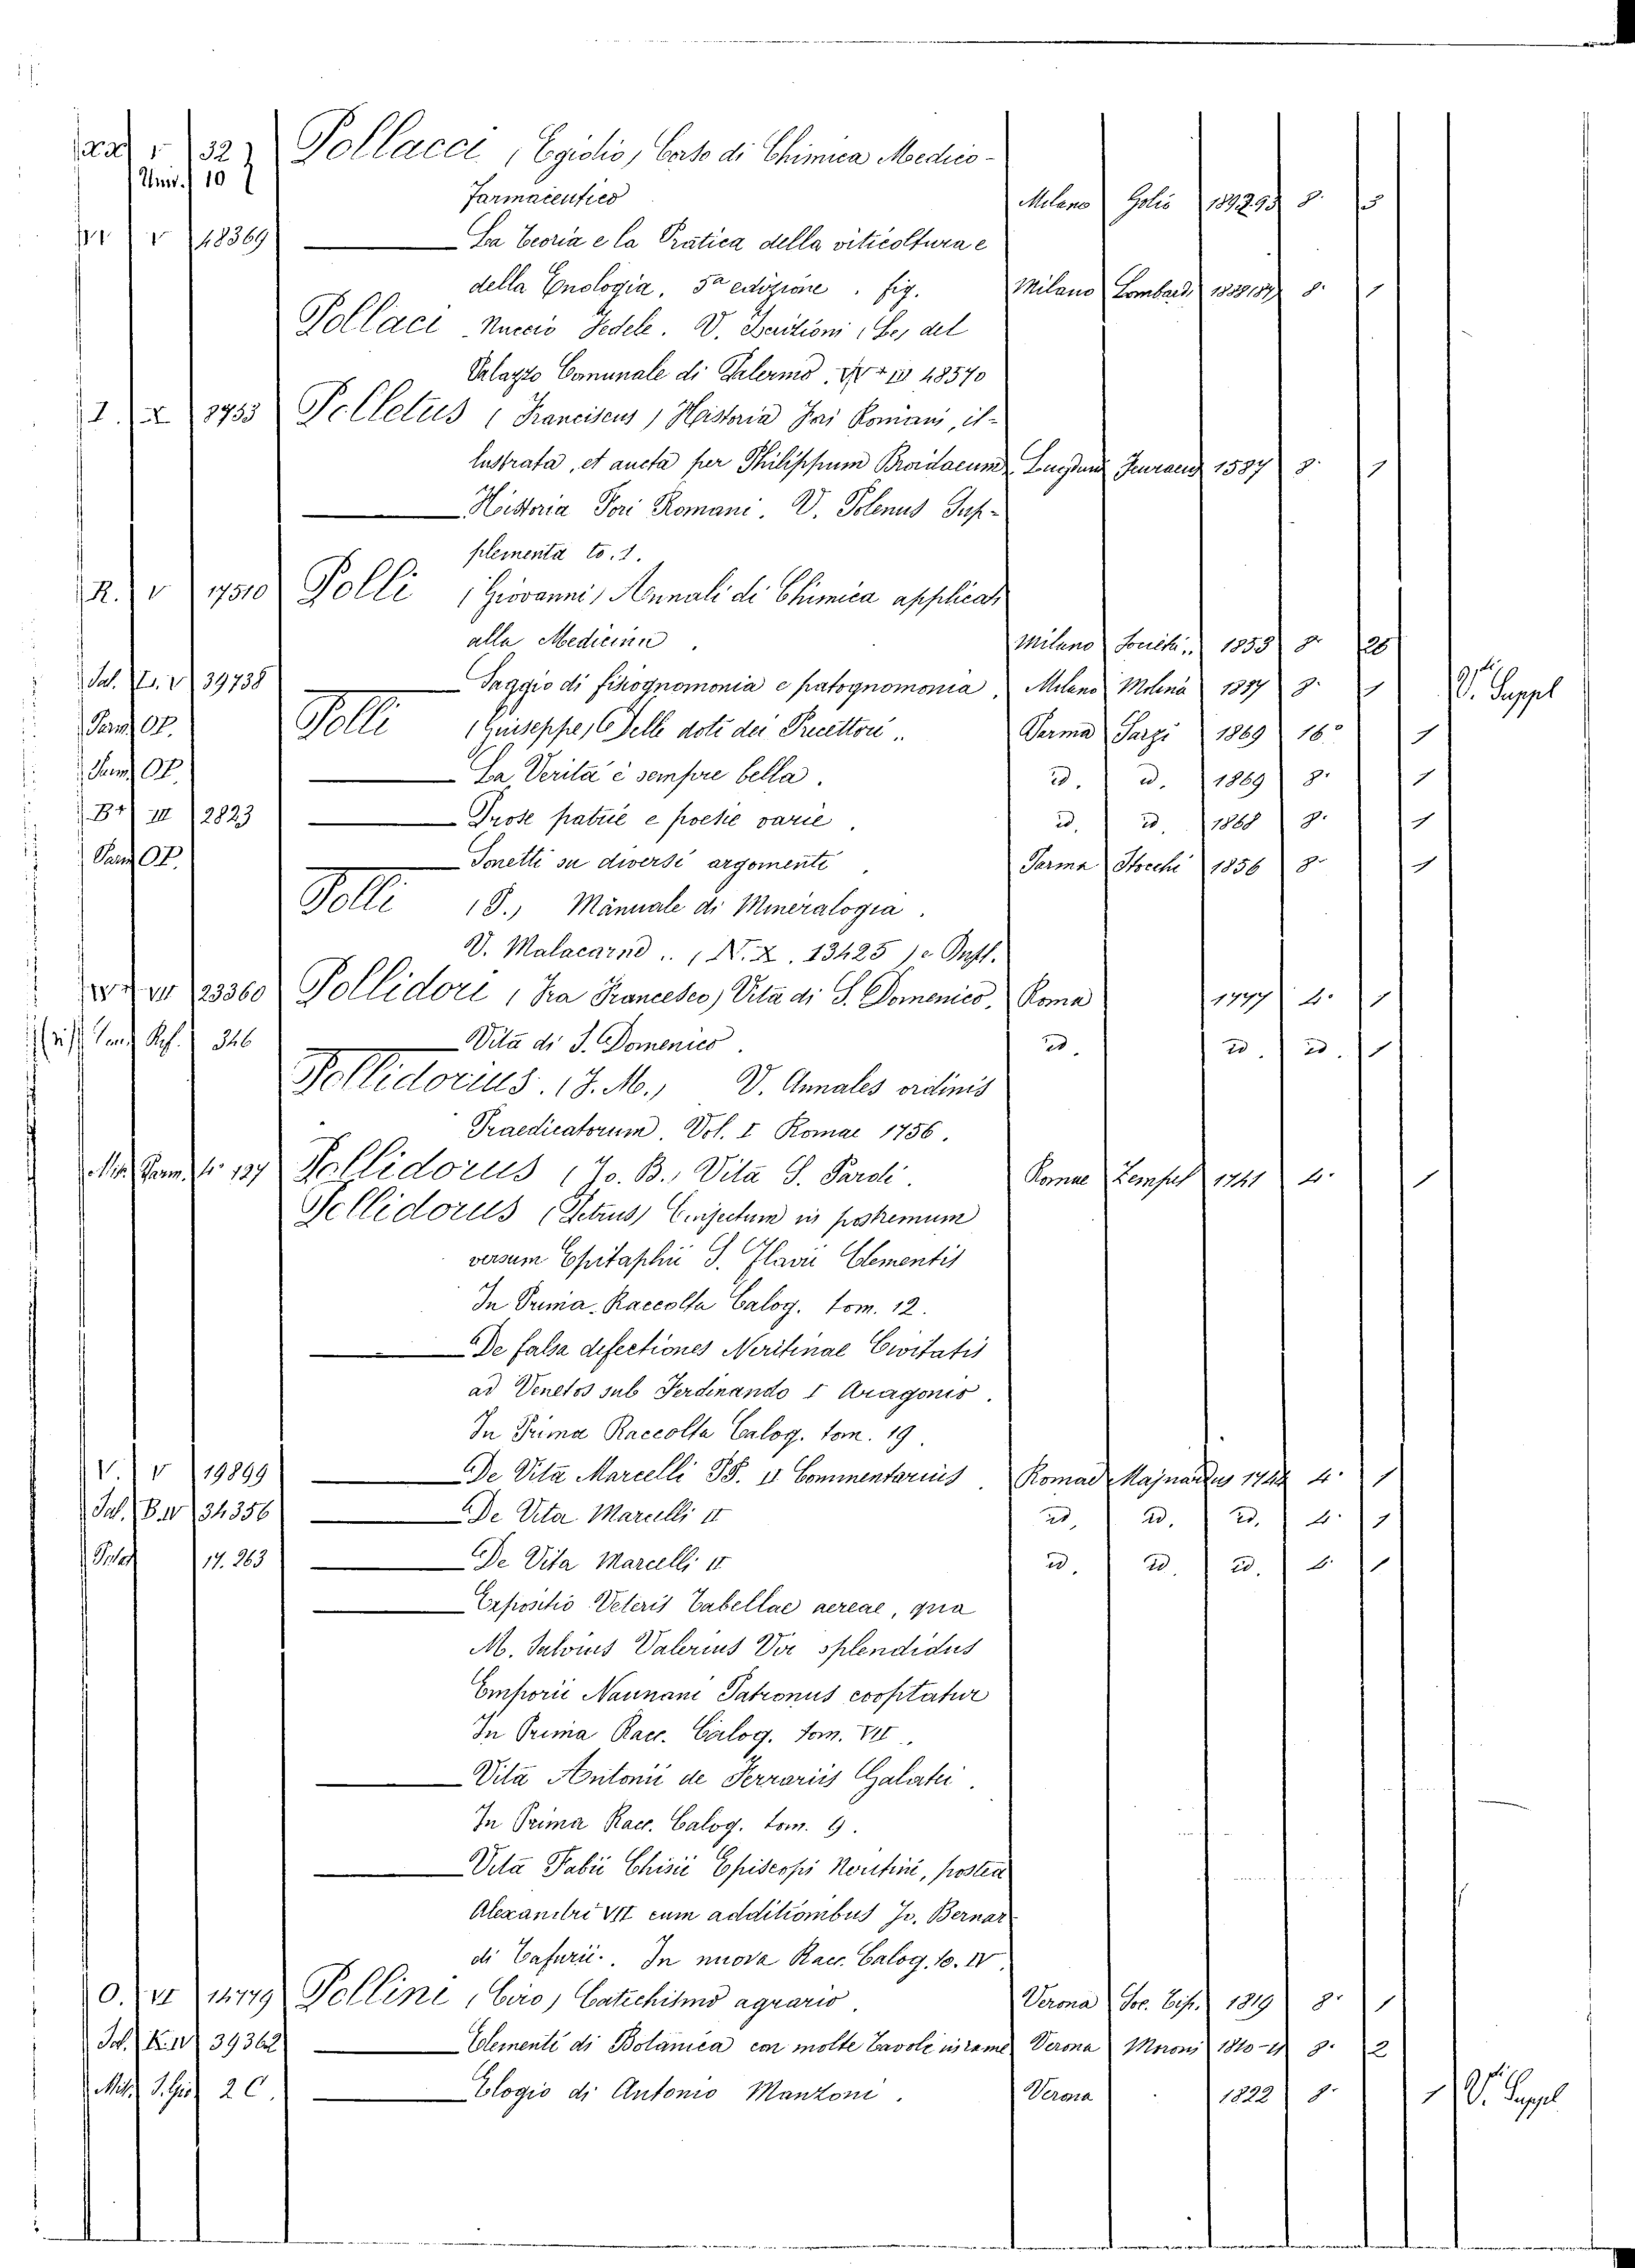 32 Pollacci (Egidio) Corso di Chimica Medico-
Univ. 10 farmaceutico Milano Golio 1892.93 8º 3
V 48369 La Teoria e la Pratica della viticoltura e
della Enologia, 5ª edizione. fig. Milano Lombardi 8º 1
Pollaci Nuccio Fedele. V. del
Palazzo Comunale di Palermo. 48570
I. X 3753 Polletus (Franciscus) Historia Fori Romani, il-
lustrata, et aucta per Philippum Broidaeum 1587 8º 1
Historia Fori Romani. V. Polenus Sup-
plementa to. 1.
R. V 17510 Polli (Giovanni) Annali di Chimica applicata
alla Medicina. Milano 1853 8º 26
Sal. V 39738 Saggio di fisiognomonia e patognomonia. Milano Molina 1837 8º 1 V. Suppl
Parm. OP. Polli (Giuseppe) Delle doti dei Precettori. Parma 1869 16º 1
Parm. OP. La Verità è sempre bella. id. id. 1869 8º 1
B+ III 2823 Prose patrie e poesie varie. id. id. 1868 8º 1
Parm. OP. Sonetti su diversi argomenti. Parma Stocchi 1856 8º 1
Polli (P.) Manuale di Mineralogia.
V. Malacarne .. (N. X. 13425)
VII 23360 Pollidori (Fra Francesco) Vita di S. Domenico. Roma 1777 4º 1
346 Vita di S. Domenico. id. id. id. 1
Pollidorius. (J. M.) V. Annales ordinis
Praedicatorum. Vol. I Romae 1756.
Mis. Parm. 4º 127 Pollidorus (Jo. B.) Vita S. Pardi. Romae Zempel 1741 4º 1
Pollidorus (Petrus) Conjectum in postremum
versum Epitaphii S. Flavii Clementis
In Prima Raccolta Calog. tom. 12.
De falsa defectiones Neritinae Civitatis
ad Venetos sub Ferdinando I Aragonio.
In Prima Raccolta Calog. tom. 19.
V. V 19899 De Vita Marcelli PP. II Commentarius. Romae Majnardus 1744 4º 1
Sal. B. IV 34356 De Vita Marcelli II id. id. id. 4º 1
17. 263 De Vita Marcelli II id. id. id. 4º 1
Expositio Veteris Tabellae aereae, qua
M. Salvius Valerius Vir splendidus
Emporii Naunani Patronus cooptatur
In Prima Racc. Calog. tom. VII.
Vita Antonii de Ferrariis Galatei.
In Prima Racc. Calog. tom. 9.
Vita Fabii Chisii Episcopi postea
Alexandri VII cum additionibus Jo. Bernar
di Tafurii. In nuova Racc. Calog. to. IV.
O. VI 14779 Pollini (Ciro) Catechismo agrario. Verona Soc. Tip. 1819 8º 1
Sal. K. IV 39362 Elementi di Botanica con molte Tavole in rame Verona Moroni 1810-11 8º 2
Mis. 20. Elogio di Antonio Manzoni. Verona 1822 8º 1 V. Suppl